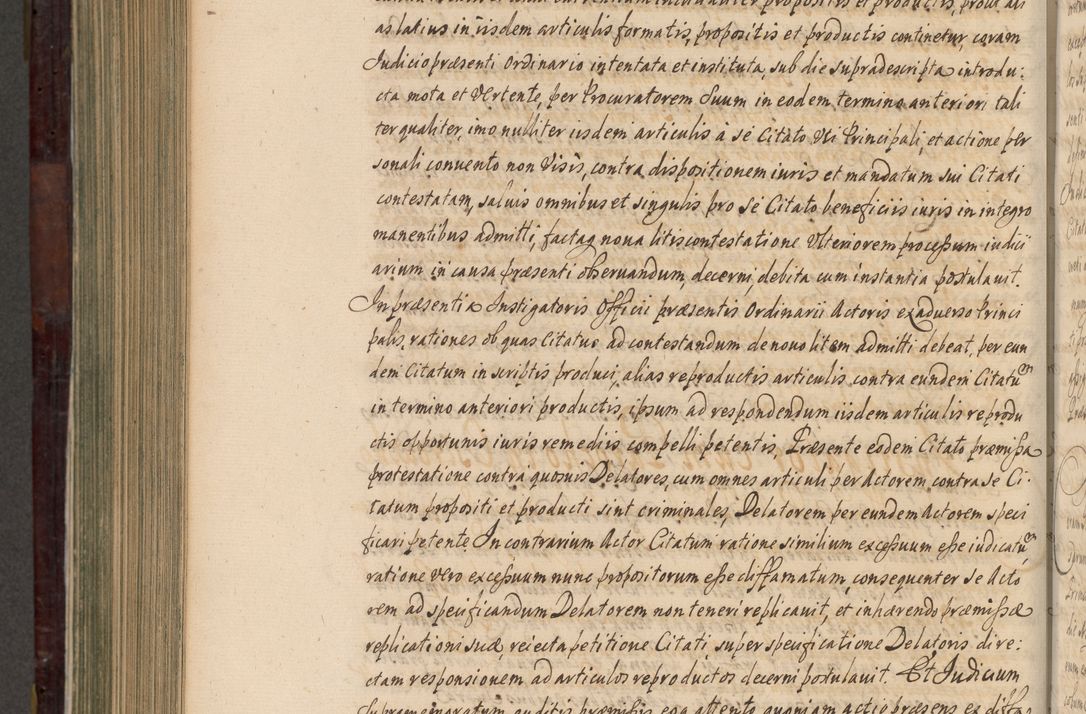 as latius in iisdem articulis formatis, propositis et productis continetur, coram
Judicio præsenti Ordinario intentata et instituta, sub die supradescripta introdu:
cta mota et Vertente, per Procuratorem Suum in eodem termino anteriori tali
ter qualiter, imo nulliter iisdem articulis à se Citato Uti Principali, et actione per
sonali convento non Visis, contra dispositionem iuris et mandatum sui Citati
contestatam, salvis omnibus et singulis pro se Citato beneficiis iuris in integro
manentibus admitti, factaq nova litis contestatione Ulteriorem processum iudici
arium in causa præsenti observandum, decerni, debita cum instantia postulavit.
In præsentia Instigatoris Officii præsentis Ordinarii Actoris ex adverso Princi
palis, rationes ob quas Citatus ad contestandum de novo litem admitti debeat, per eun
dem Citatum in scriptis produci, alias reproductis articulis contra eundem Citatũ
in termino anteriori productis, ipsum ad respondendum iisdem articulis reprodu
ctis opportunis iuris remediis compelli petentis, Præsente eodem Citato præmissa
protestatione contra quosvis Delatores, cum omnes articuli per Actorem contra se Ci-
tatum propositi et producti sint criminales, Delatorem per eundem Actorem speci
ficari petente In contrarium Actor Citatum ratione similium excessuum esse iudicatũ,
ratione vero excessuum nunc propositorum esse diffamatum, consequenter se Acto
rem ad specificandum Delatorem non teneri replicavit, et inhærendo præmissæ
replicationi suæ, reiecta petitione Citati, super specificatione Delatoris dire:
ctam responsionem ad articulos reproductos decerni postulavit. Et Judicium
auditis præmissis eoq attento quoniam actio præsens ex diffa